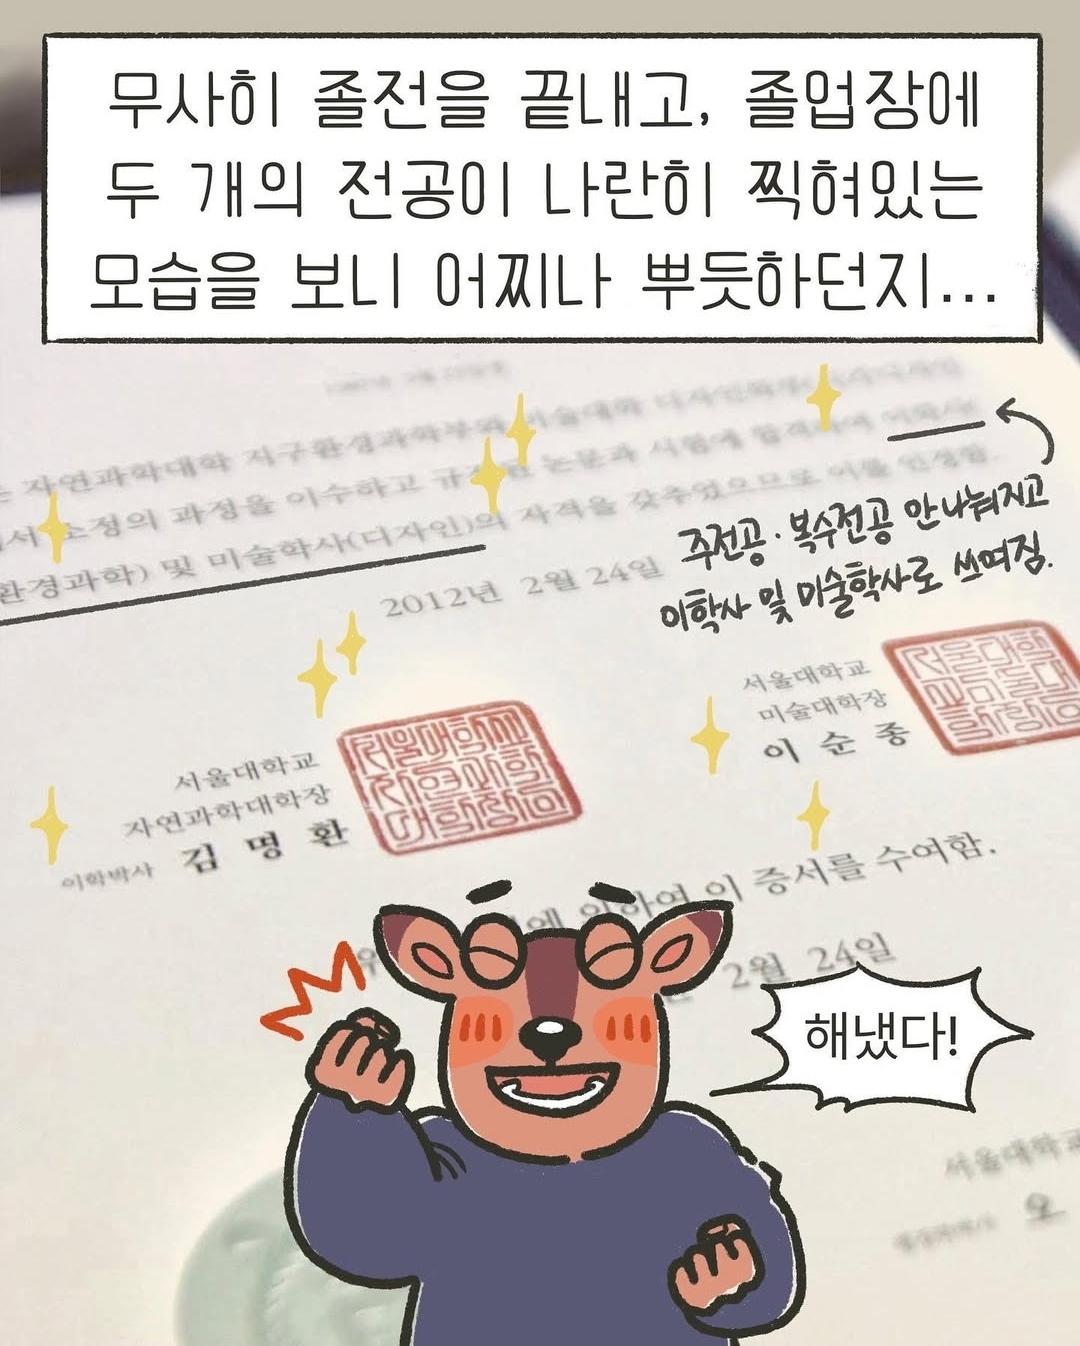 무사히 졸전을 끝내고, 졸업장에
두 개의 전공이 나란히 찍혀있는
모습을 보니 어찌나 뿌듯하던지...
자연과학대학 지구환경과학부와 미술대학 디자인학부
소정의 과정을 이수하고 논문과 시험에 합격하여 이학사
환경과학) 및 미술학사(디자인)의 자격을 갖추었으므로 이를 인정함.
2012년 2월 24일
주전공·복수전공 안나눠지고
이학사 및 미술학사로 쓰여짐.
서울대학교
미술대학장
이 순 종
서울대학교
자연과학대학장
이학박사 김 명 환
에 의하여 이 증서를 수여함.
2월 24일
해냈다!
서울대학교
오